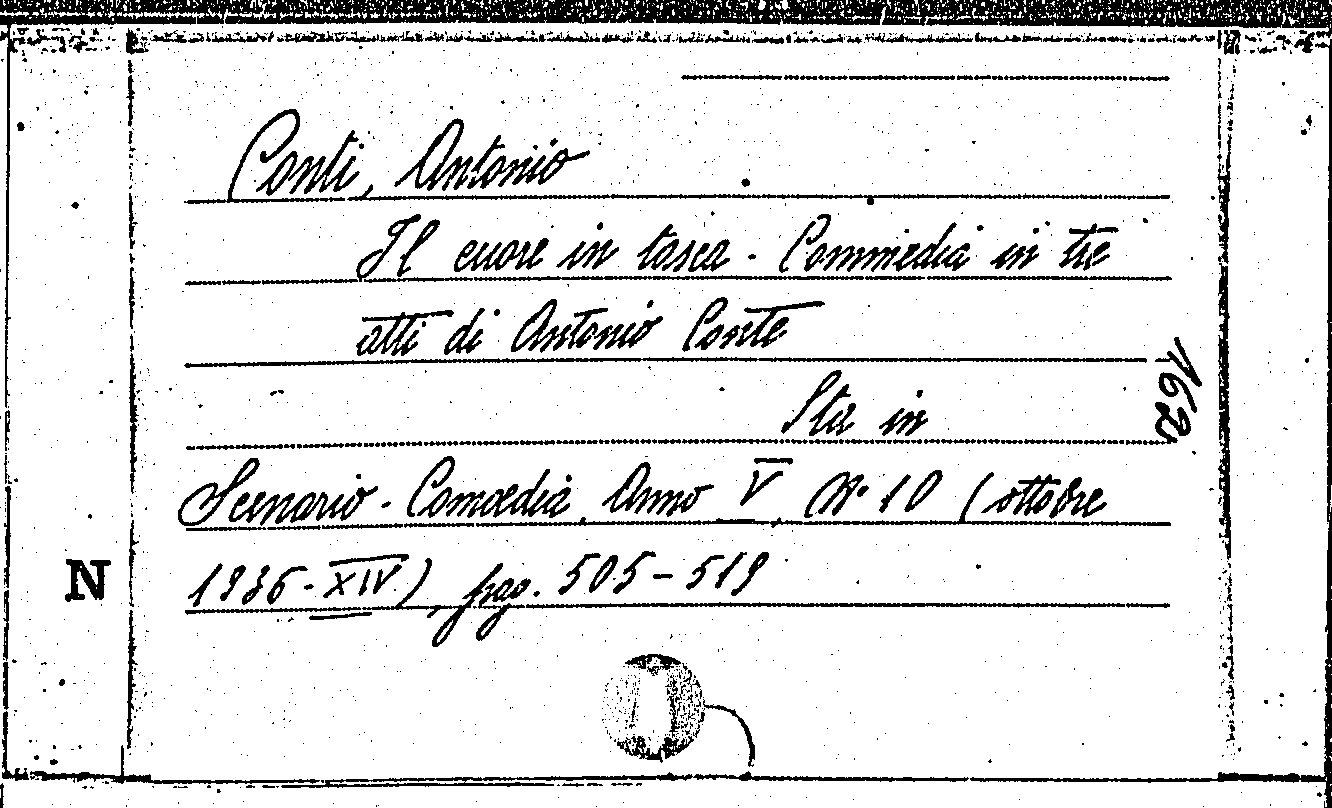 Conti, Antonio
Il cuore in tasca - Commedia in tre
atti di Antonio Conte
Sta in
Scenario - Comoedia, Anno V, N° 10 (ottobre
1936-XIV), pag. 505-519
162
N